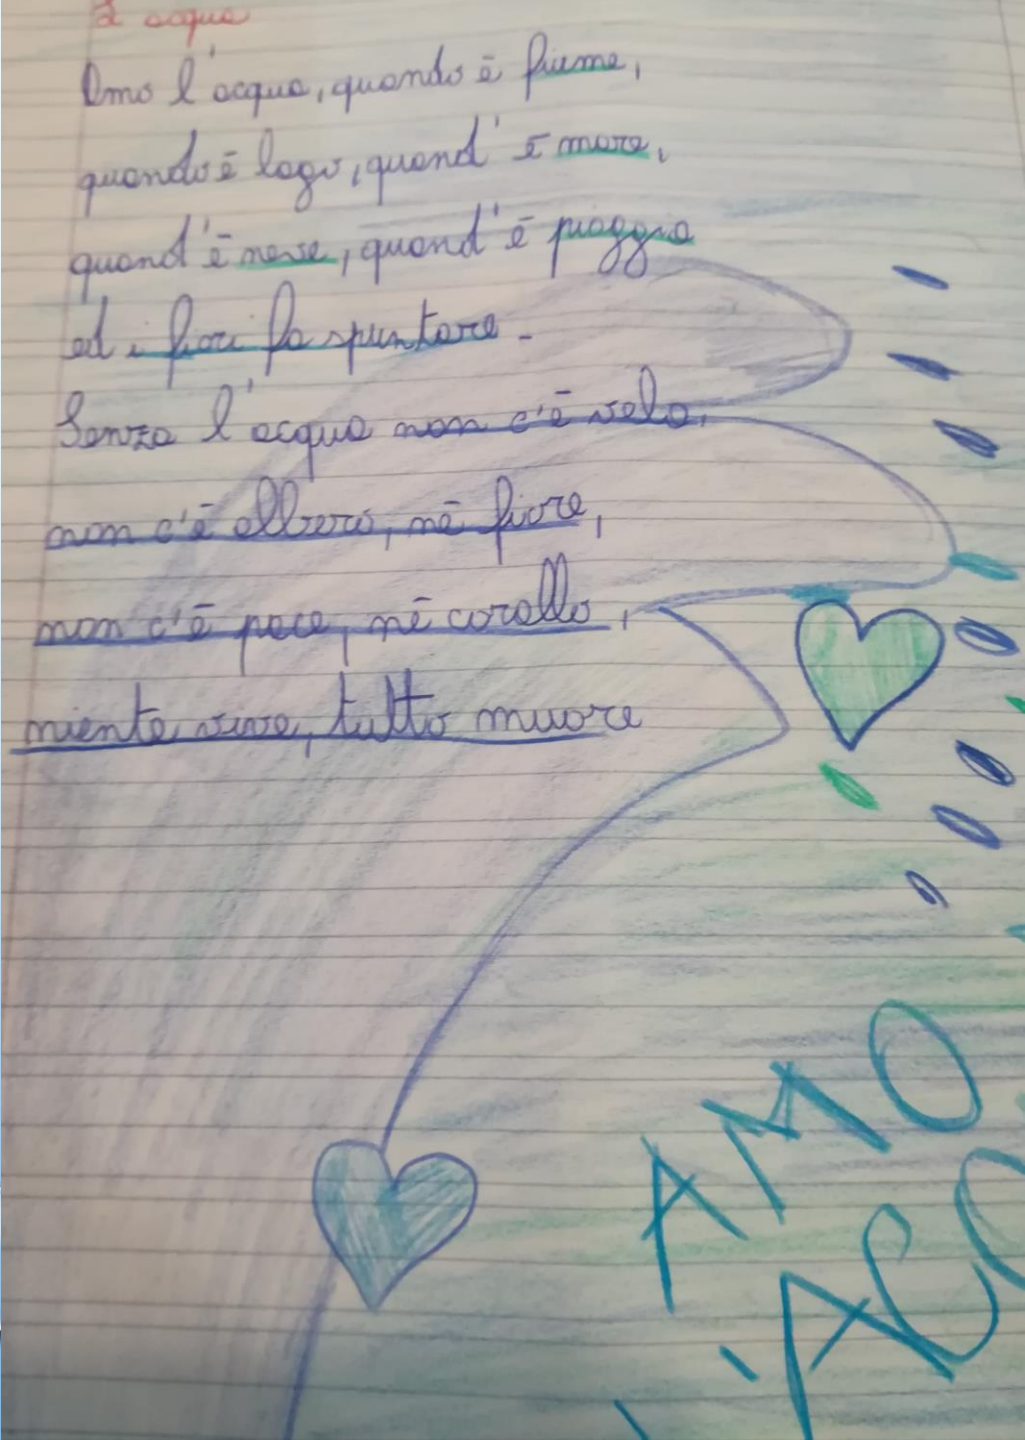 L'acqua
Amo l'acqua, quando è fiume,
quando è lago, quand'è mare,
quand'è neve, quand'è pioggia
ed i fiori fa spuntare.
Senza l'acqua non c'è vela,
non c'è albero, nè fiore,
non c'è pesce, nè corallo,
niente vive, tutto muore
AMO
L'ACQ